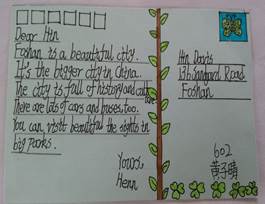 Dear Htn
Foshan is a beautiful city.
It's the bigger city in China.
The city is full of history and
There are lots of cars and buses, too.
You can visit beautiful the sights in
big parks.
Yours,
Henn
Htn Davis
Road
Foshan
602
黄子晴